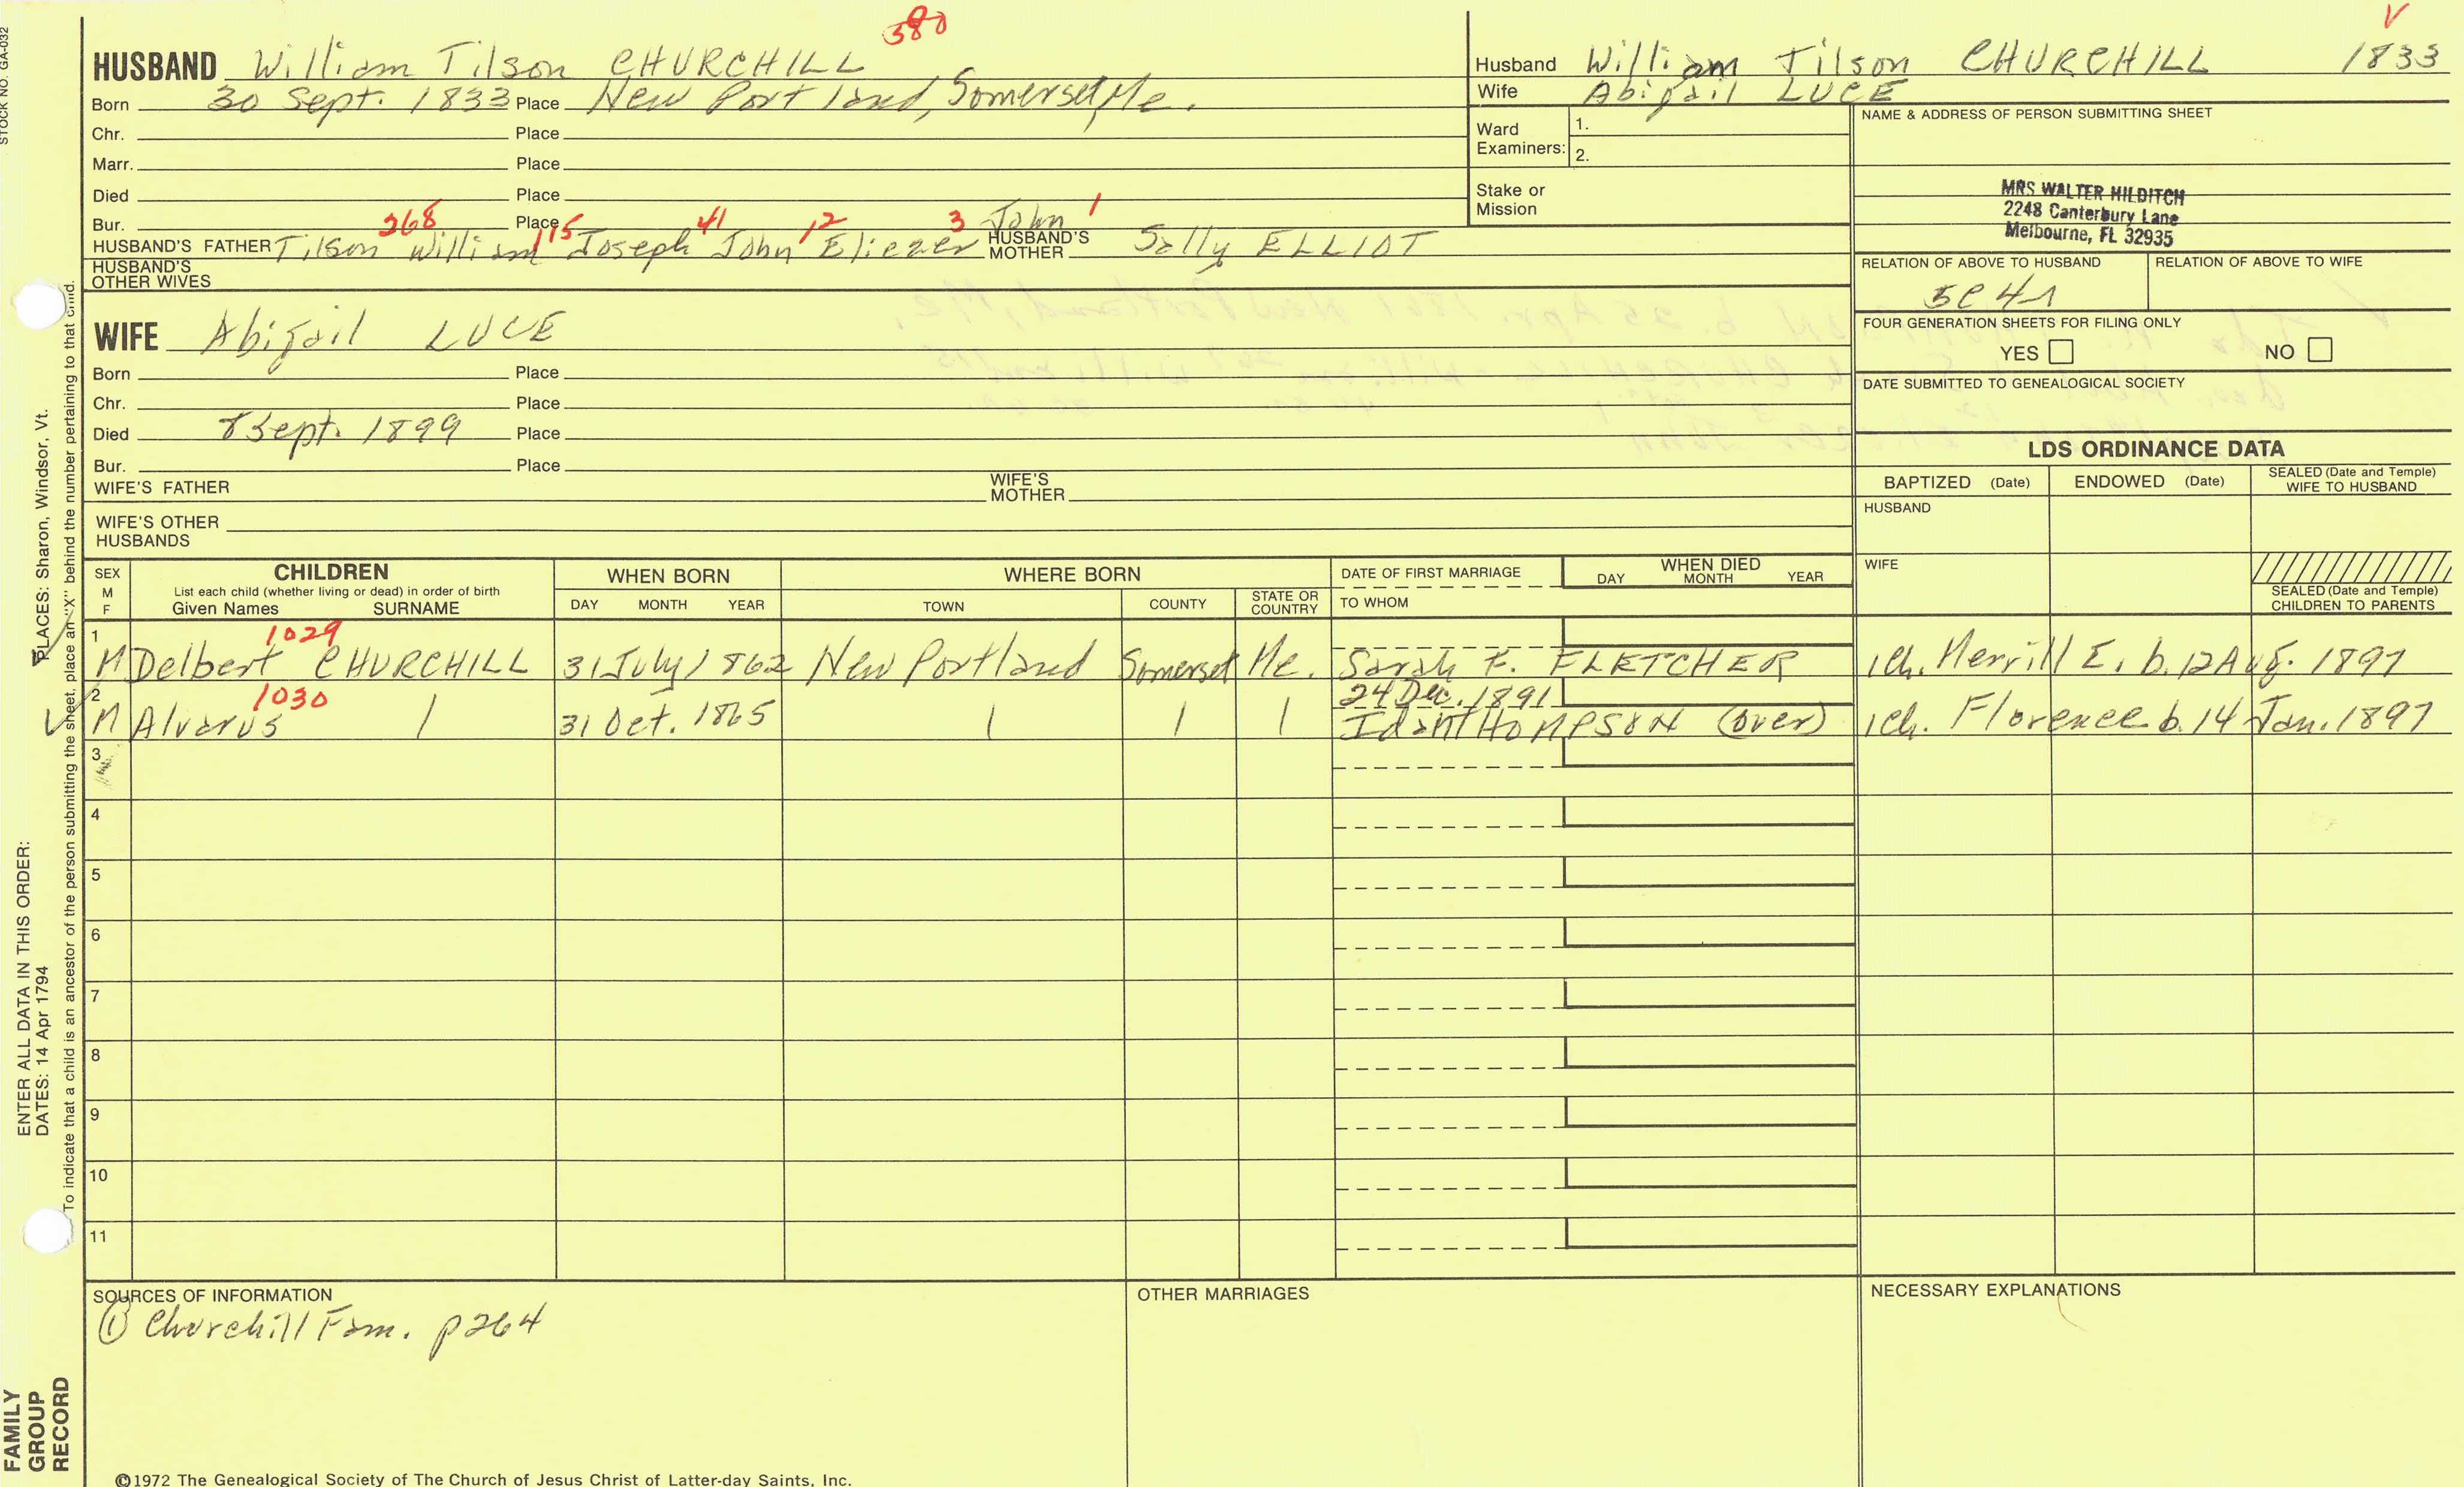 380
HUSBAND William Tilson CHURCHILL
Born 30 Sept. 1833 Place New Portland, Somerset, Me.
Chr. Place
Marr. Place
Died Place
Bur. Place
268 115 41 12 3 John 1
HUSBAND'S FATHER Tilson William Joseph John Eliezer HUSBAND'S MOTHER Sally ELLIOT
HUSBAND'S OTHER WIVES
WIFE Abigail LUCE
Born Place
Chr. Place
Died 8 Sept. 1899 Place
Bur. Place
WIFE'S FATHER WIFE'S MOTHER
WIFE'S OTHER HUSBANDS
V
Husband William Tilson CHURCHILL 1833
Wife Abigail LUCE
Ward Examiners: 1.
2.
Stake or Mission
NAME & ADDRESS OF PERSON SUBMITTING SHEET
MRS WALTER HILDITCH
2248 Canterbury Lane
Melbourne, FL 32935
RELATION OF ABOVE TO HUSBAND RELATION OF ABOVE TO WIFE
5C4
FOUR GENERATION SHEETS FOR FILING ONLY
YES NO
DATE SUBMITTED TO GENEALOGICAL SOCIETY
LDS ORDINANCE DATA
BAPTIZED (Date) ENDOWED (Date) SEALED (Date and Temple) WIFE TO HUSBAND
HUSBAND
WIFE
SEALED (Date and Temple) CHILDREN TO PARENTS
SEX M F
CHILDREN
List each child (whether living or dead) in order of birth
Given Names SURNAME
WHEN BORN
DAY MONTH YEAR
WHERE BORN
TOWN COUNTY STATE OR COUNTRY
DATE OF FIRST MARRIAGE
TO WHOM
WHEN DIED
DAY MONTH YEAR
1 1029
M Delbert CHURCHILL 31 July 1862 New Portland Somerset Me. Sarah F. FLETCHER 1ch. Merrill E. b. 12 Aug. 1897
2 1030 24 Dec. 1891
M Alvarus 31 Oct. 1865 Ida THOMPSON (over) 1ch. Florence b. 14 Jan. 1897
3
4
5
6
7
8
9
10
11
SOURCES OF INFORMATION
① Churchill Fam. p264
OTHER MARRIAGES
NECESSARY EXPLANATIONS
©1972 The Genealogical Society of The Church of Jesus Christ of Latter-day Saints, Inc.
STOCK NO. GA-032
To indicate that a child is an ancestor of the person submitting the sheet, place an "X" behind the number pertaining to that child.
ENTER ALL DATA IN THIS ORDER:
DATES: 14 Apr 1794 PLACES: Sharon, Windsor, Vt.
FAMILY
GROUP
RECORD